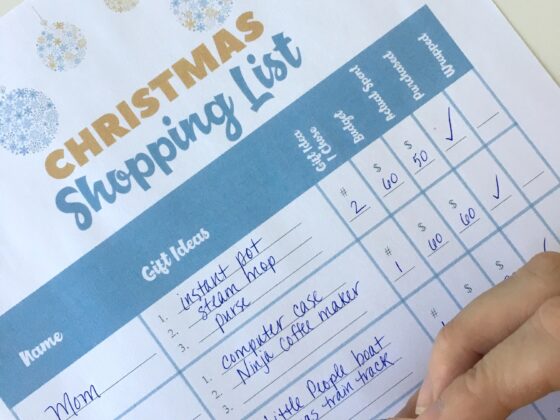 CHRISTMAS
Shopping List
Name
Gift Ideas
Gift Idea
I Chose
Budget
Actual Spent
Purchased
Wrapped
Mom
1. instant pot
2. steam mop
3. purse
# 2
$ 60
$ 50
✓
1. computer case
2. Ninja coffee maker
3.
# 1
$ 60
$ 60
✓
Little People boat
train track